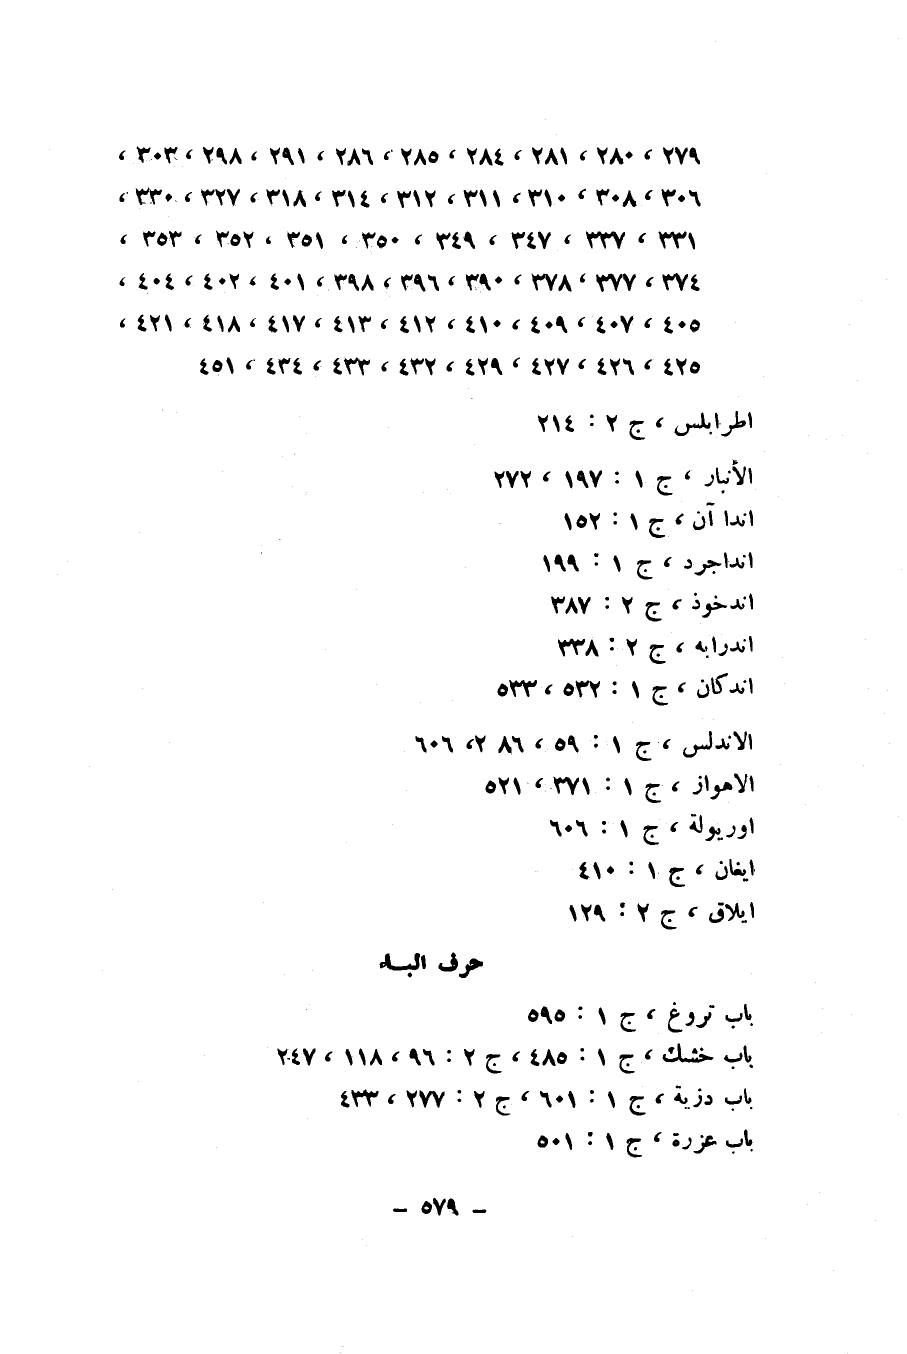 ٢٧٩ ، ٢٨٠ ، ٢٨١ ، ٢٨٤ ، ٢٨٥ ، ٢٨٦ ، ٢٩١ ، ٢٩٨ ، ٣٠٣ ،
٣٠٦ ، ٣٠٨ ، ٣١٠ ، ٣١١ ، ٣١٢ ، ٣١٤ ، ٣١٨ ، ٣٢٧ ، ٣٣٠ ،
٣٣١ ، ٣٣٧ ، ٣٤٧ ، ٣٤٩ ، ٣٥٠ ، ٣٥١ ، ٣٥٢ ، ٣٥٣ ،
٣٧٤ ، ٣٧٧ ، ٣٧٨ ، ٣٩٠ ، ٣٩٦ ، ٣٩٨ ، ٤٠١ ، ٤٠٢ ، ٤٠٤ ،
٤٠٥ ، ٤٠٧ ، ٤٠٩ ، ٤١٠ ، ٤١٢ ، ٤١٣ ، ٤١٧ ، ٤١٨ ، ٤٢١ ،
٤٢٥ ، ٤٢٦ ، ٤٢٧ ، ٤٢٩ ، ٤٣٢ ، ٤٣٣ ، ٤٣٤ ، ٤٥١
اطرابلس ، ج ٢ : ٢١٤
الأنبار ، ج ١ : ١٩٧ ، ٢٧٢
اندا آن ، ج ١ : ١٥٢
انداجرد ، ج ١ : ١٩٩
اندخوذ ، ج ٢ : ٣٨٧
اندرابه ، ج ٢ : ٣٣٨
اندكان ، ج ١ : ٥٣٢ ، ٥٣٣
الاندلس ، ج ١ : ٥٩ ، ٨٦ ٢، ٦٠٦
الاهواز ، ج ١ : ٣٧١ ، ٥٢١
اوريولة ، ج ١ : ٦٠٦
ايغان ، ج ١ : ٤١٠
ايلاق ، ج ٢ : ١٢٩
حرف البـاء
باب تروغ ، ج ١ : ٥٩٥
باب خشك ، ج ١ : ٤٨٥ ، ج ٢ : ٩٦ ، ١١٨ ، ٢٤٧
باب دزية ، ج ١ : ٦٠١ ، ج ٢ : ٢٧٧ ، ٤٣٣
باب عزرة ، ج ١ : ٥٠١
– ٥٧٩ –